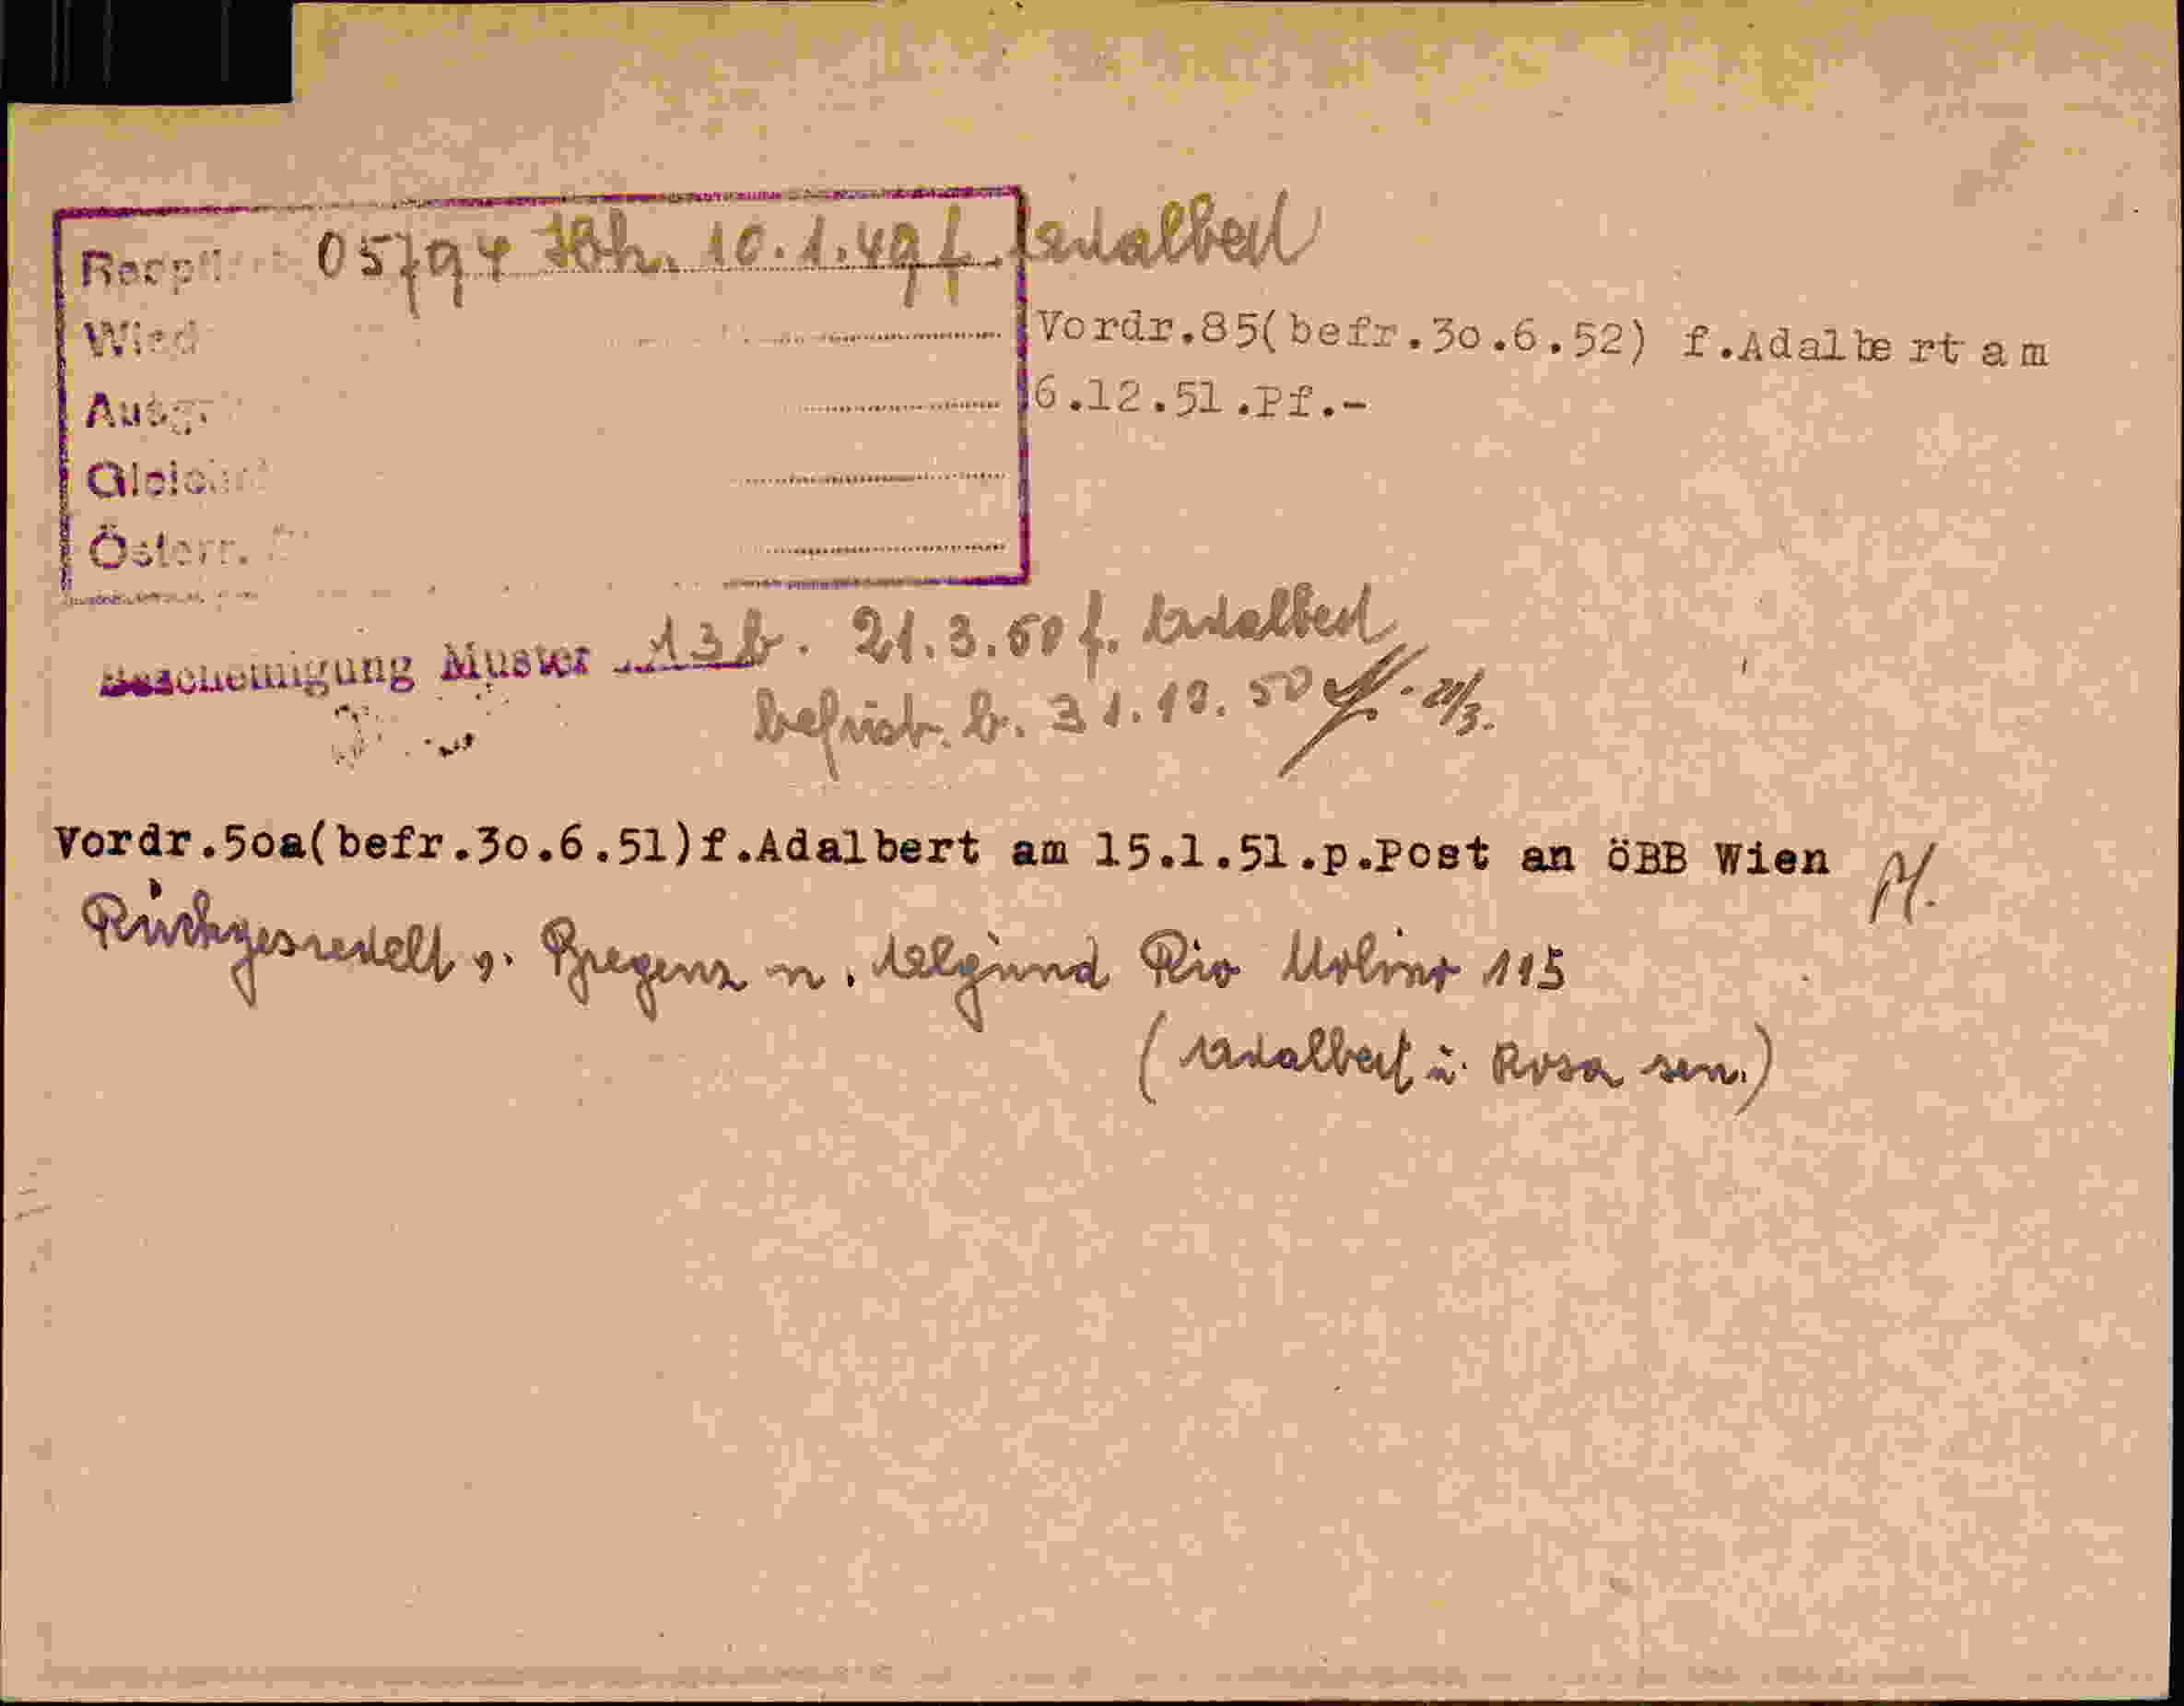 05794 Bh. 10.1.49 f. Adalbert
Wied
Vordr.85(befr.30.6.52) f.Adalbert am
Ausg
6.12.51.Pf.-
Österr.
Bescheinigung Muster 13b. 21.3.50 f. Adalbert
befrist. b. 31.12.50 Pf. 21/3.
Vordr.50a(befr.30.6.51)f.Adalbert am 15.1.51.p.Post an öBB Wien Pf.
Rückgesiedelt v. Bregenz n. Algund Rio Molino 115
(Adalbert u. Rosa sen.)